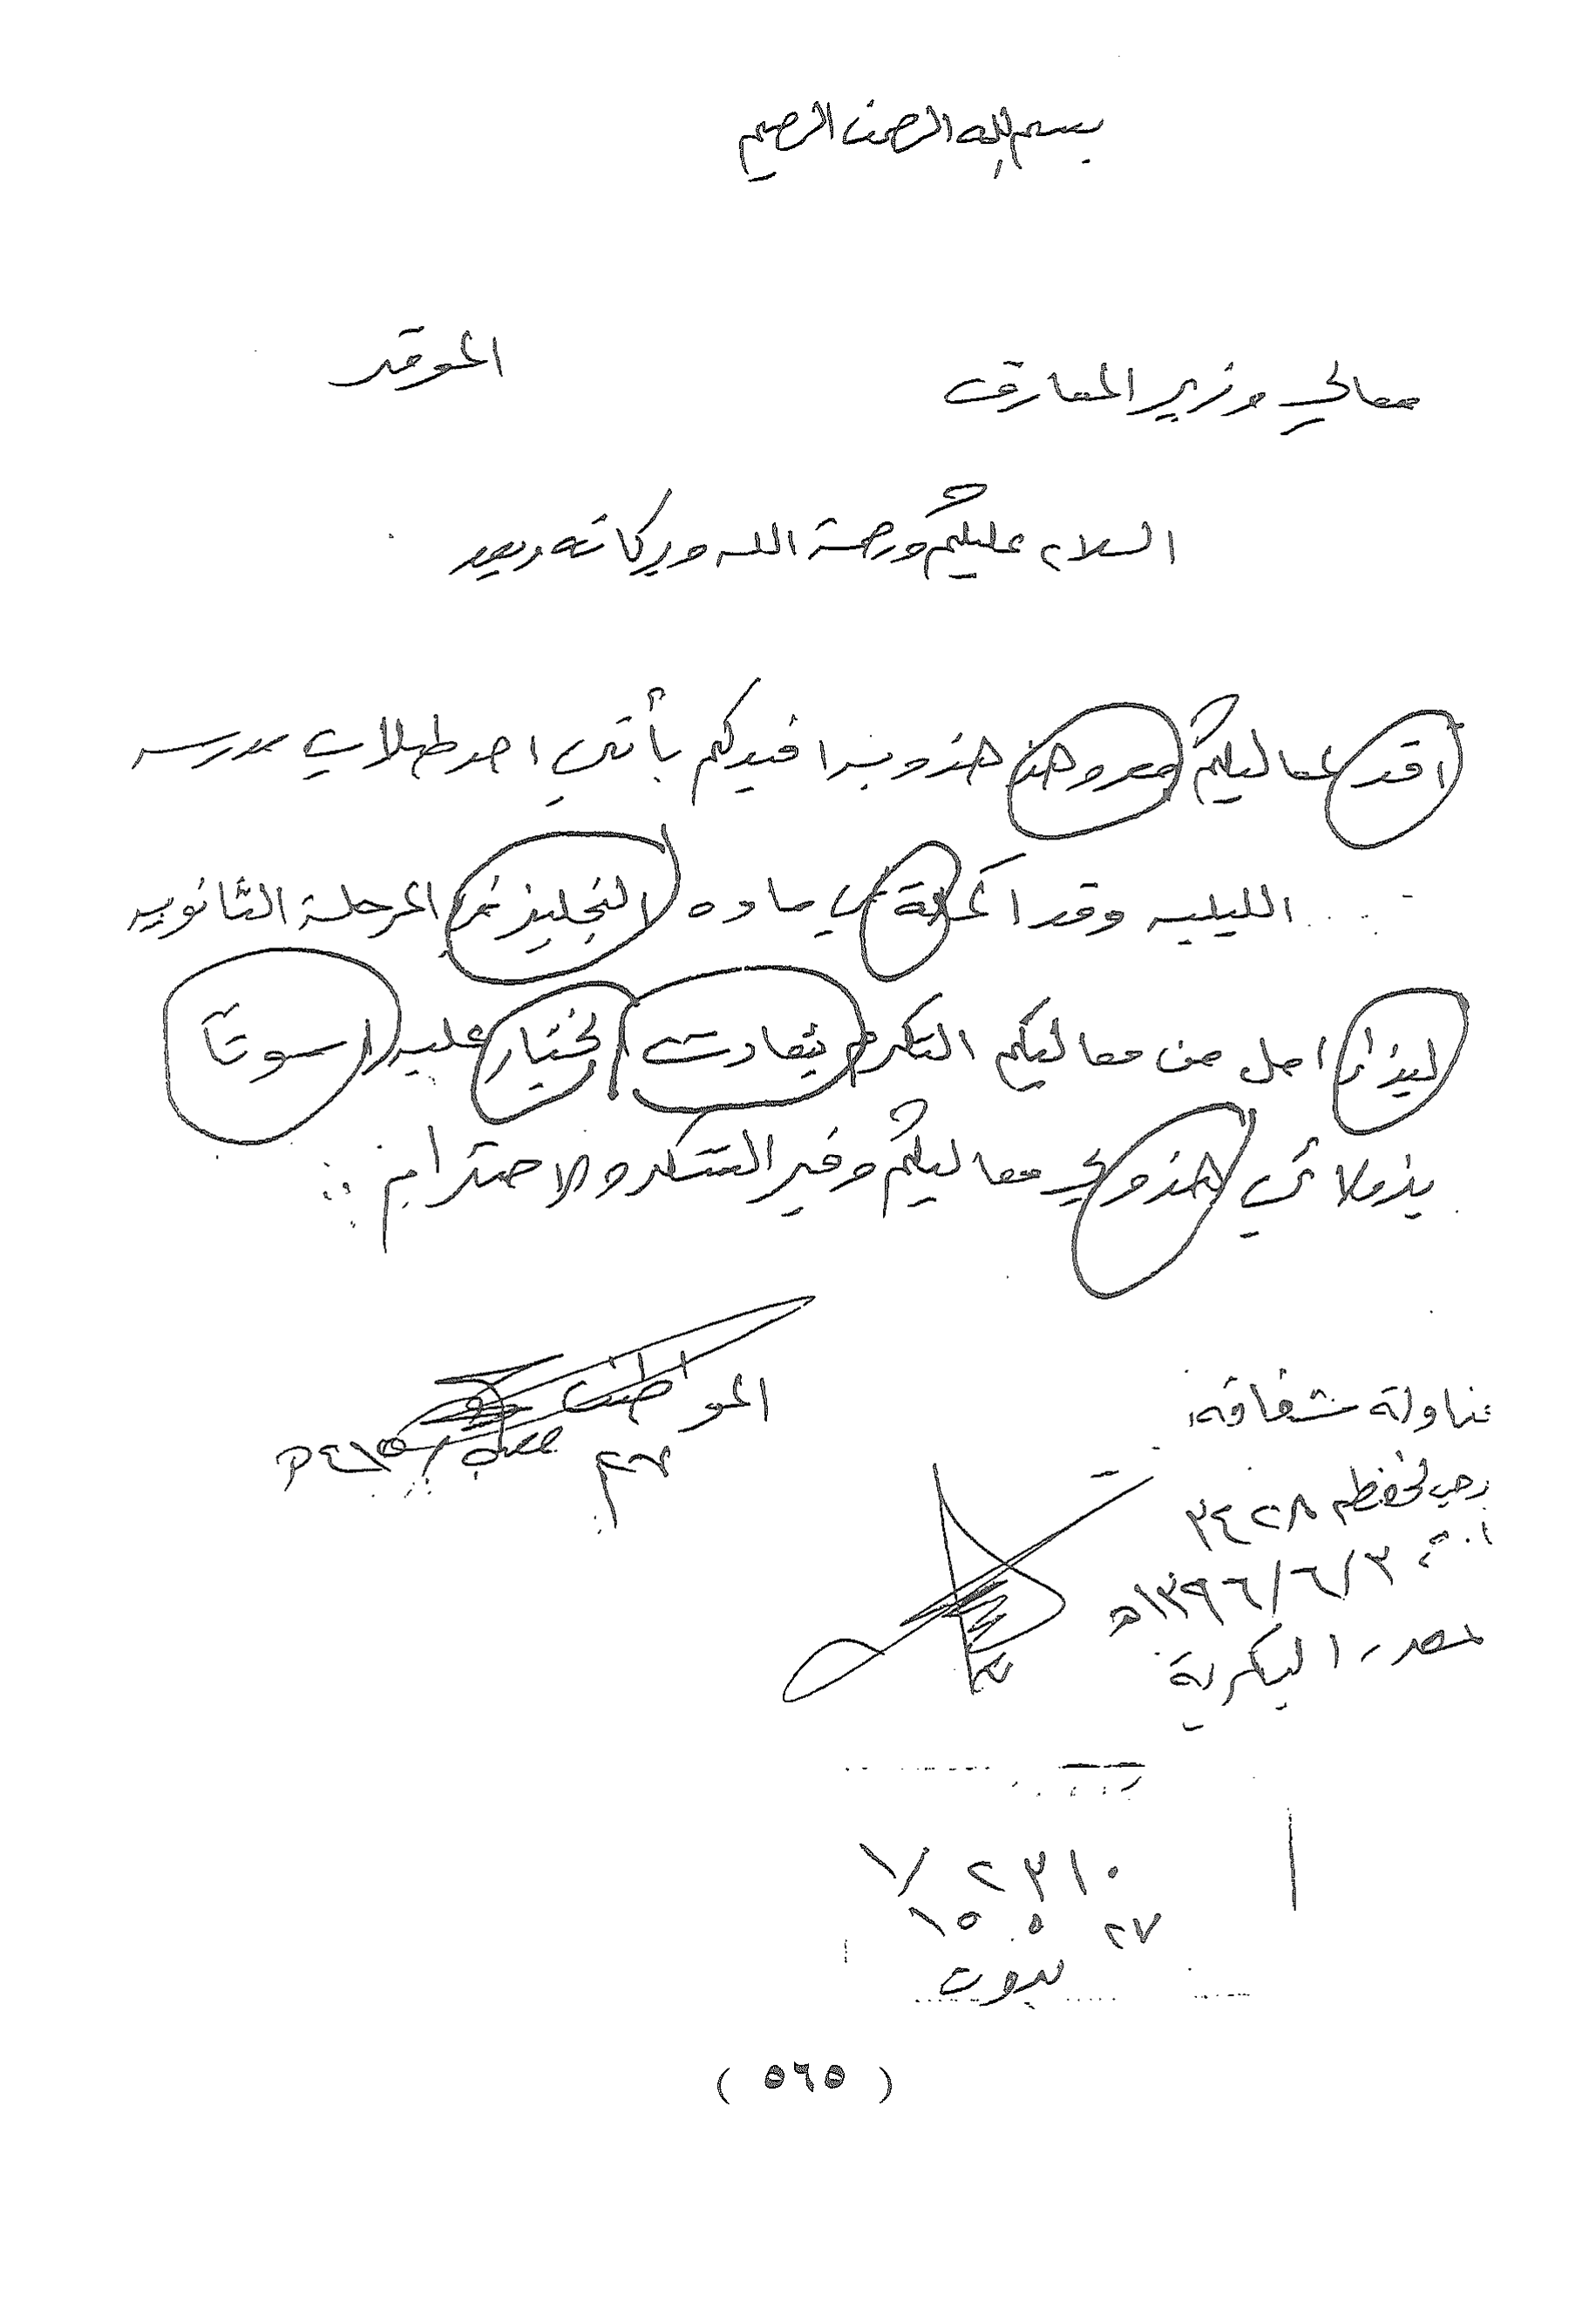 بسم الله الرحمن الرحيم
معالي وزير المعارف الموقر
السلام عليكم ورحمة الله وبركاته وبعد
اقد لمعاليكم معروض هذ وبه افيدكم بأنني احد طلاب مدرسه
الليليه وقد اكملة في ماده النجليز في المرحلة الثانويه
ليذا امل من معاليكم التكرم بثعادت اختيار عليه اسوتاً
بذملائي هذو لي معاليكم وفير الشكر والاحترام
المواطن
مناولة شفاقه
٣٤٢٨
١٣٩٦/٦/٣هـ
مصدر البكرية
٢٣١٠ /١
٢٧ ٥ ١٥
(٥٦٥)